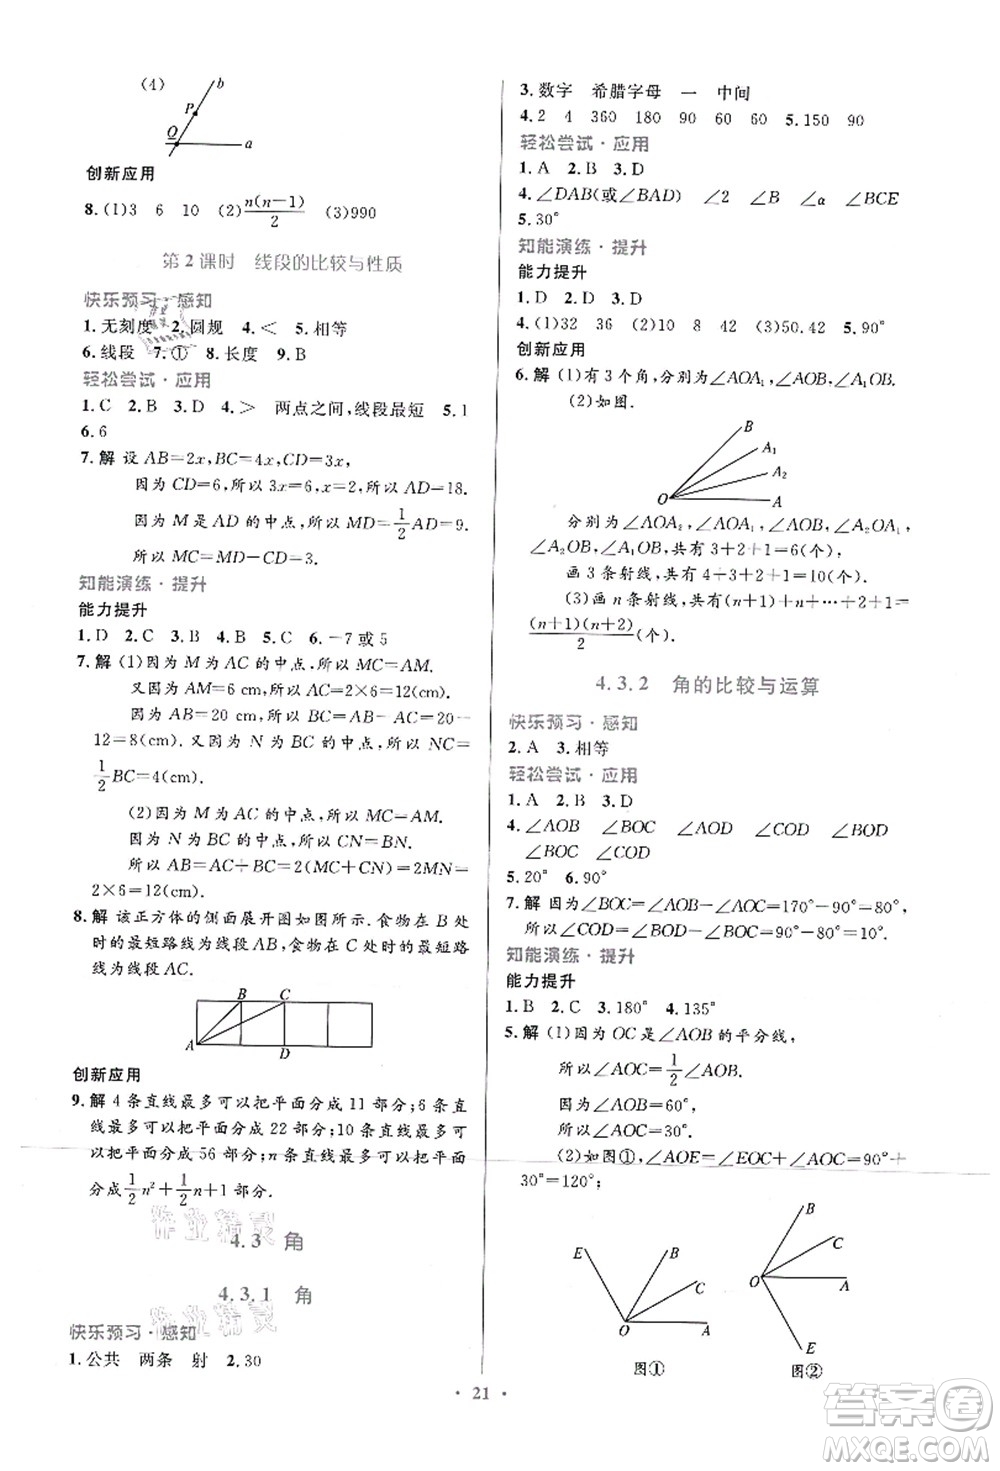 (4)
b
P
Q
a
创新应用
8.(1)3 6 10 (2)n(n-1)/2 (3)990
第2课时 线段的比较与性质
快乐预习·感知
1.无刻度 2.圆规 4.< 5.相等
6.线段 7.① 8.长度 9.B
轻松尝试·应用
1.C 2.B 3.D 4.> 两点之间,线段最短 5.1
6.6
7.解 设AB=2x,BC=4x,CD=3x,
因为CD=6,所以3x=6,x=2,所以AD=18.
因为M是AD的中点,所以MD=1/2AD=9.
所以MC=MD-CD=3.
知能演练·提升
能力提升
1.D 2.C 3.B 4.B 5.C 6.-7或5
7.解 (1)因为M为AC的中点,所以MC=AM.
又因为AM=6 cm,所以AC=2×6=12(cm).
因为AB=20 cm,所以BC=AB-AC=20-
12=8(cm).又因为N为BC的中点,所以NC=
1/2BC=4(cm).
(2)因为M为AC的中点,所以MC=AM.
因为N为BC的中点,所以CN=BN.
所以AB=AC+BC=2(MC+CN)=2MN=
2×6=12(cm).
8.解 该正方体的侧面展开图如图所示.食物在B处
时的最短路线为线段AB,食物在C处时的最短路
线为线段AC.
B C
A D
创新应用
9.解 4条直线最多可以把平面分成11部分;6条直
线最多可以把平面分成22部分;10条直线最多可
以把平面分成56部分;n条直线最多可以把平面
分成1/2n²+1/2n+1部分.
4.3 角
4.3.1 角
快乐预习·感知
1.公共 两条 射 2.30
3.数字 希腊字母 一 中间
4.2 4 360 180 90 60 60 5.150 90
轻松尝试·应用
1.A 2.B 3.D
4.∠DAB(或∠BAD) ∠2 ∠B ∠α ∠BCE
5.30°
知能演练·提升
能力提升
1.D 2.D 3.D
4.(1)32 36 (2)10 8 42 (3)50.42 5.90°
创新应用
6.解 (1)有3个角,分别为∠AOA₁,∠AOB,∠A₁OB.
(2)如图.
B
A₁
A₂
O A
分别为∠AOA₂,∠AOA₁,∠AOB,∠A₂OA₁,
∠A₂OB,∠A₁OB,共有3+2+1=6(个).
画3条射线,共有4+3+2+1=10(个).
(3)画n条射线,共有(n+1)+n+…+2+1=
(n+1)(n+2)/2(个).
4.3.2 角的比较与运算
快乐预习·感知
2.A 3.相等
轻松尝试·应用
1.A 2.B 3.D
4.∠AOB ∠BOC ∠AOD ∠COD ∠BOD
∠BOC ∠COD
5.20° 6.90°
7.解 因为∠BOC=∠AOC-∠AOB=170°-90°=80°,
所以∠COD=∠BOD-∠BOC=90°-80°=10°.
知能演练·提升
能力提升
1.B 2.C 3.180° 4.135°
5.解 (1)因为OC是∠AOB的平分线,
所以∠AOC=1/2∠AOB.
因为∠AOB=60°,
所以∠AOC=30°.
(2)如图①,∠AOE=∠EOC+∠AOC=90°+
30°=120°;
E B C O A
图①
B C O A E
图②
· 21 ·
作业精灵
作业精灵
答案卷
MXQE.COM